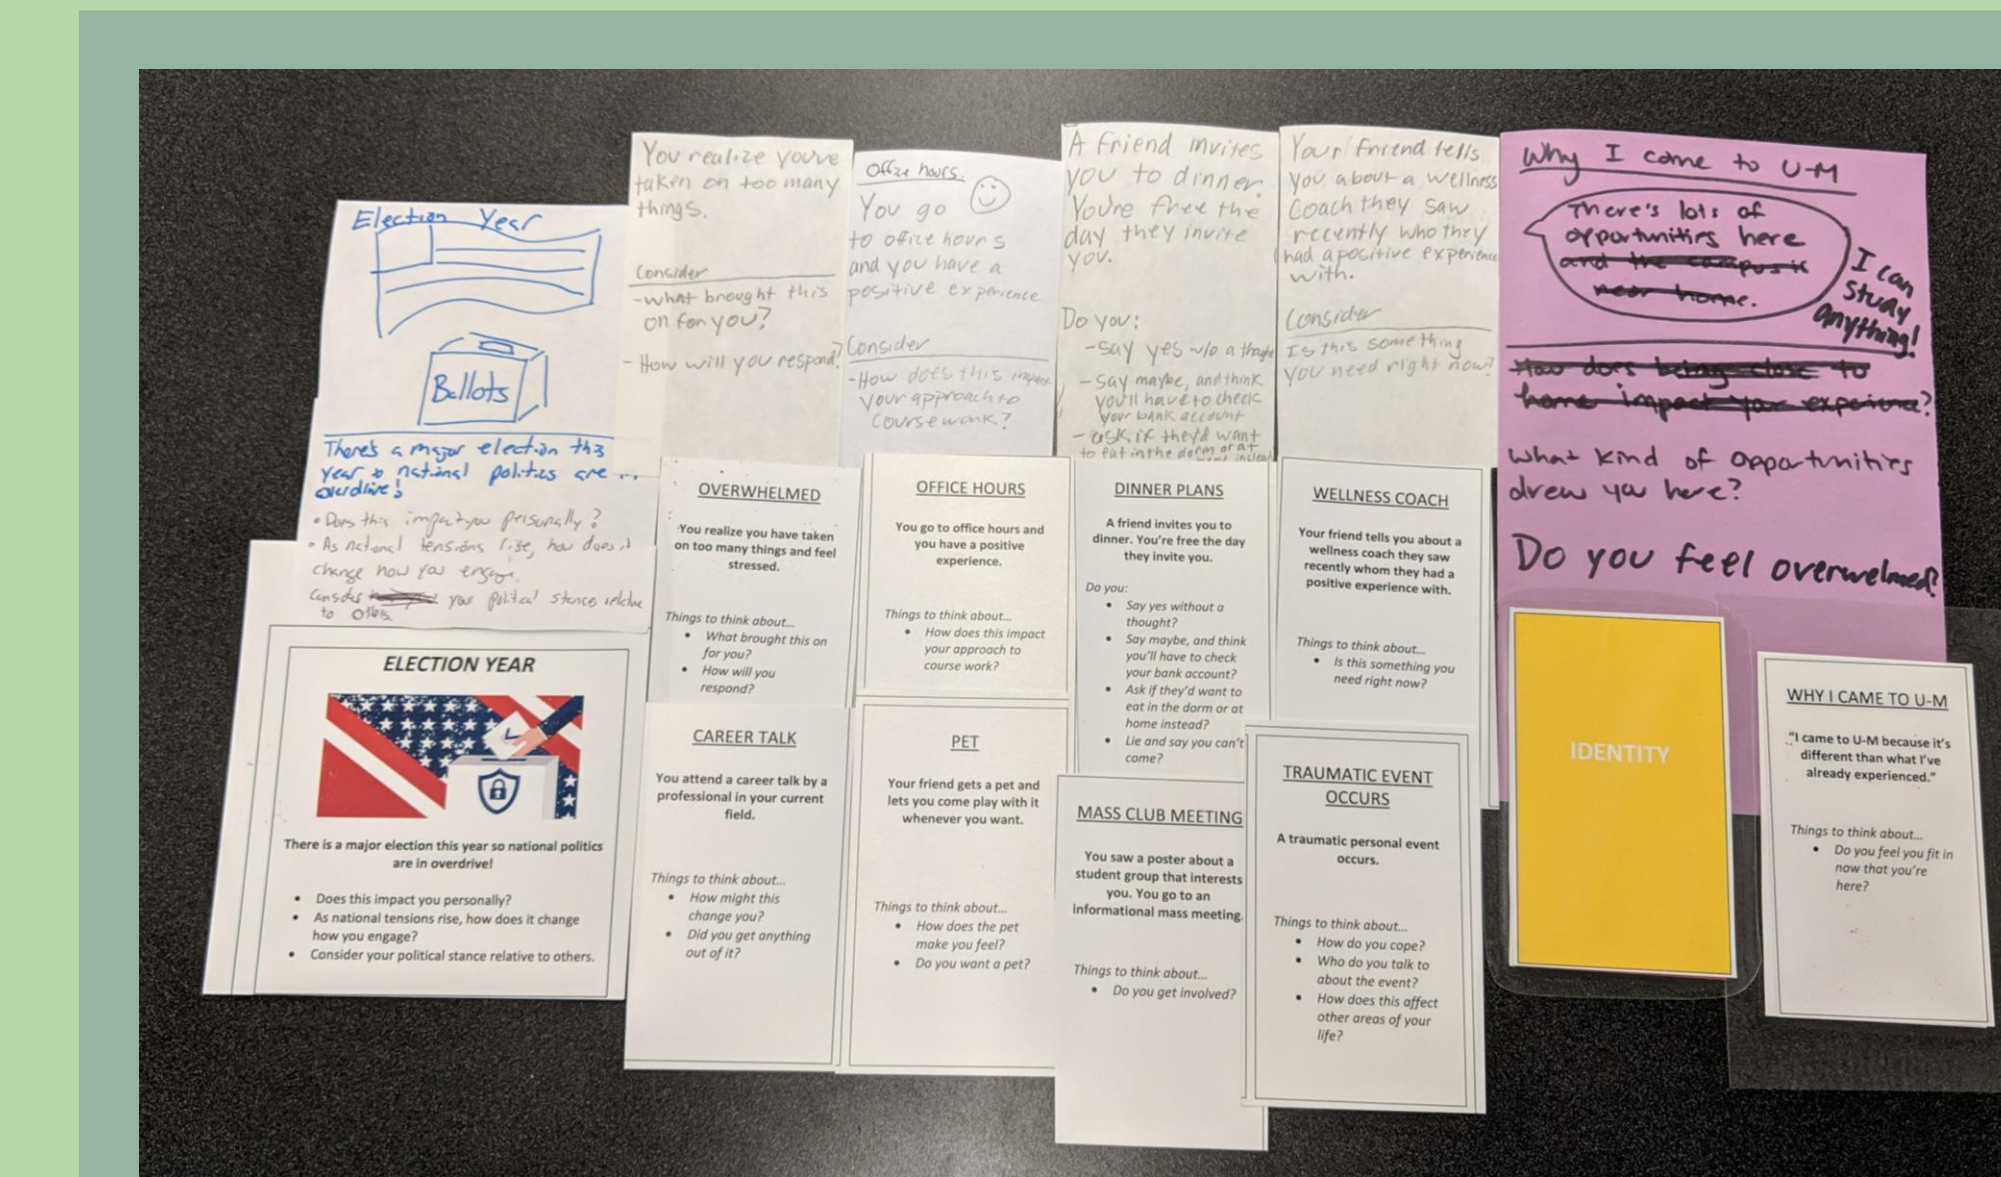 Election Year
Ballots
There's a major election this
year so national politics are in
overdrive!
• Does this impact you personally?
• As national tensions rise, how does it
change how you engage.
Consider your political stance relative
to others.
You realize youve
taken on too many
things.
Consider
-what brought this
on for you?
- How will you respond?
Office hours.
You go
to office hours
and you have a
positive experience
Consider
-How does this impact
your approach to
coursework?
A friend invites
you to dinner.
You're free the
day they invite
you.
Do you:
-say yes w/o a thought
- say maybe, and think
you'll have to check
your bank account
- ask if they'd want
to eat in the dorm or at
home instead
Your friend tells
you about a wellness
coach they saw
recently who they
had a positive experience
with.
Consider
Is this something
you need right now?
Why I came to U-M
There's lots of
opportunities here
and the campus is
near home.
I can
study
anything!
How does being close to
home impact your experience?
What kind of opportunities
drew you here?
Do you feel overwelmed?
ELECTION YEAR
There is a major election this year so national politics
are in overdrive!
• Does this impact you personally?
• As national tensions rise, how does it change
how you engage?
• Consider your political stance relative to others.
OVERWHELMED
You realize you have taken
on too many things and feel
stressed.
Things to think about...
• What brought this on
for you?
• How will you
respond?
OFFICE HOURS
You go to office hours and
you have a positive
experience.
Things to think about...
• How does this impact
your approach to
course work?
DINNER PLANS
A friend invites you to
dinner. You're free the day
they invite you.
Do you:
• Say yes without a
thought?
• Say maybe, and think
you'll have to check
your bank account?
• Ask if they'd want to
eat in the dorm or at
home instead?
• Lie and say you can't
come?
WELLNESS COACH
Your friend tells you about a
wellness coach they saw
recently whom they had a
positive experience with.
Things to think about...
• Is this something you
need right now?
CAREER TALK
You attend a career talk by a
professional in your current
field.
Things to think about...
• How might this
change you?
• Did you get anything
out of it?
PET
Your friend gets a pet and
lets you come play with it
whenever you want.
Things to think about...
• How does the pet
make you feel?
• Do you want a pet?
MASS CLUB MEETING
You saw a poster about a
student group that interests
you. You go to an
informational mass meeting.
Things to think about...
• Do you get involved?
TRAUMATIC EVENT
OCCURS
A traumatic personal event
occurs.
Things to think about...
• How do you cope?
• Who do you talk to
about the event?
• How does this affect
other areas of your
life?
IDENTITY
WHY I CAME TO U-M
"I came to U-M because it's
different than what I've
already experienced."
Things to think about...
• Do you feel you fit in
now that you're
here?